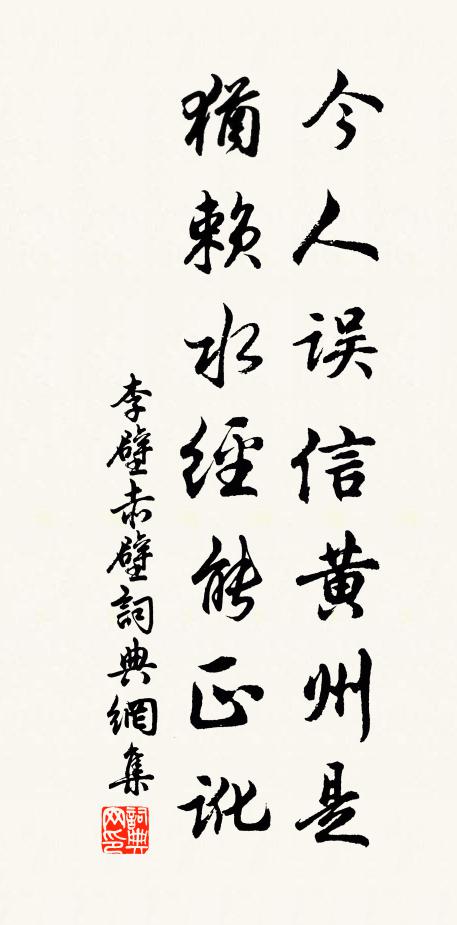 今人误信黄州是
猶赖水經能正訛
李壁赤壁詞典網集
詞典网印